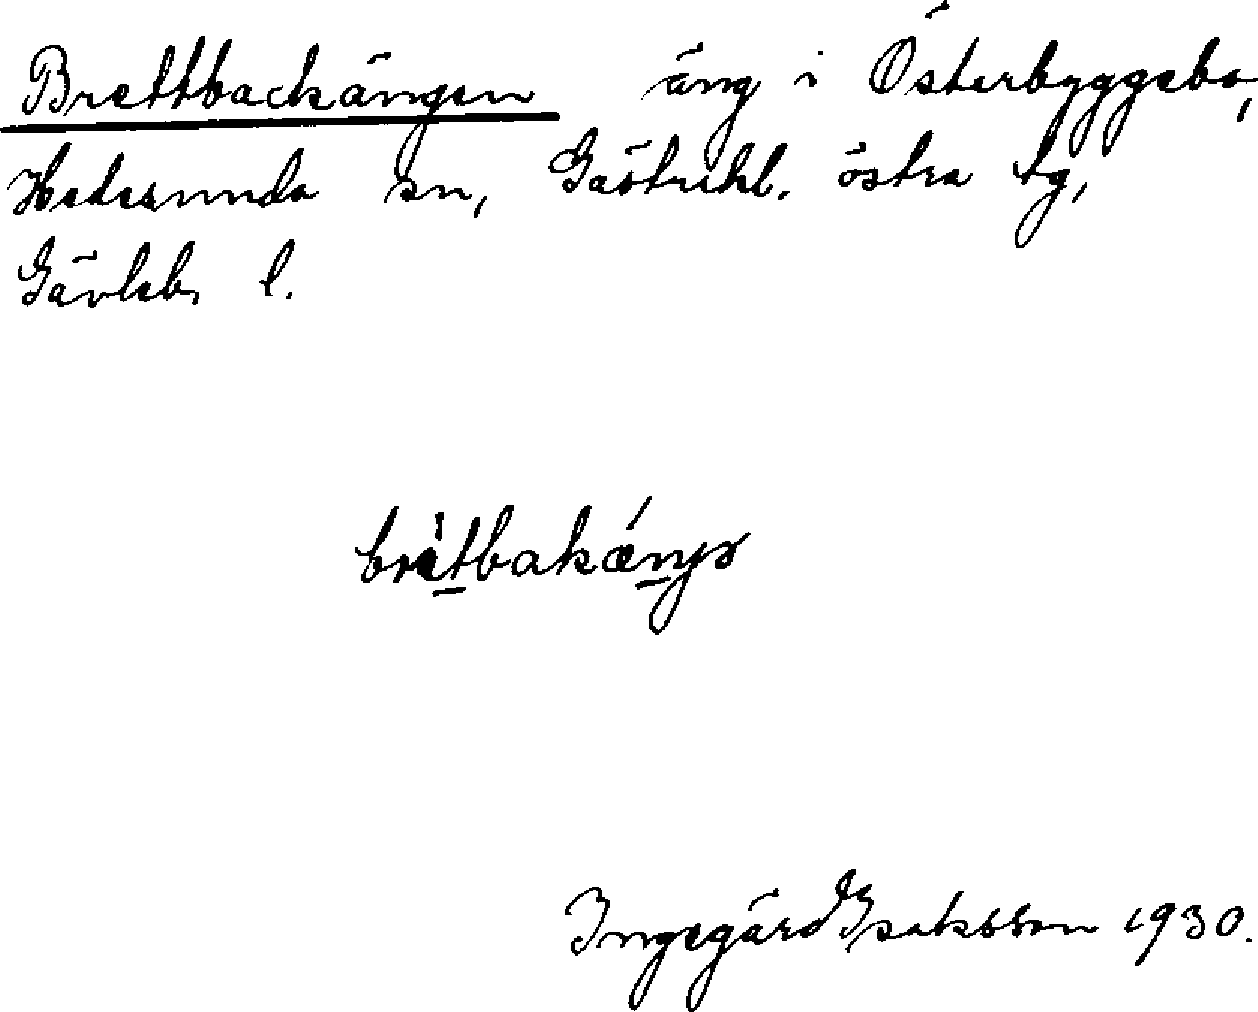 Brettbackängen äng i Österbyggebo,
Hedesunda sn, Gästrikl. östra tg,
Gävleb. l.
Ingegärd Isaksson 1930.